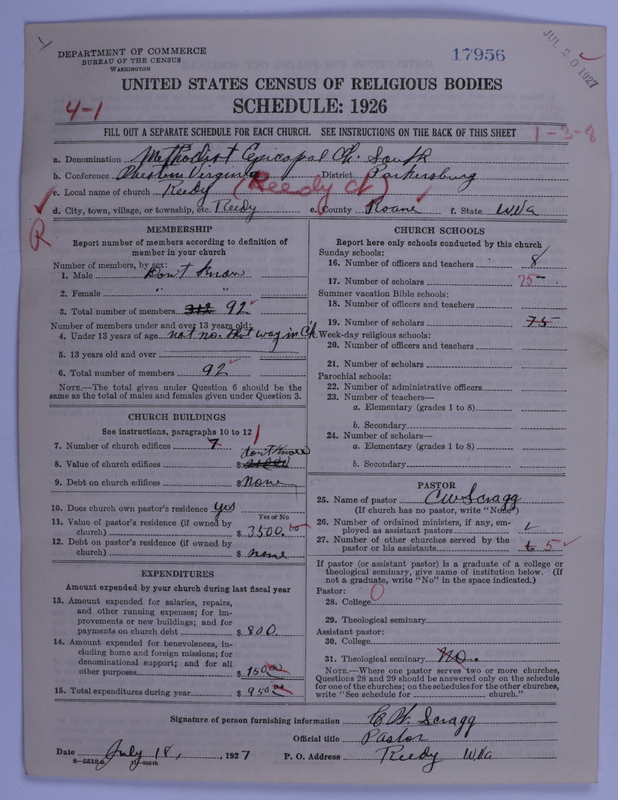 1
DEPARTMENT OF COMMERCE
BUREAU OF THE CENSUS
WASHINGTON
17956
JUL 20 1927
UNITED STATES CENSUS OF RELIGIOUS BODIES
4-1
SCHEDULE: 1926
FILL OUT A SEPARATE SCHEDULE FOR EACH CHURCH. SEE INSTRUCTIONS ON THE BACK OF THIS SHEET
1-3-8
a. Denomination Methodist Episcopal Ch. South
b. Conference Western Virginia District Parkersburg
c. Local name of church Reedy (Reedy Ct)
d. City, town, village, or township, etc. Reedy e. County Roane f. State WVa
R
MEMBERSHIP
Report number of members according to definition of member in your church
Number of members, by sex:
1. Male Don't Know
2. Female " "
3. Total number of members 312 92
Number of members under and over 13 years old:
4. Under 13 years of age not no. that way in Ch
5. 13 years old and over
6. Total number of members 92
NOTE.—The total given under Question 6 should be the same as the total of males and females given under Question 3.
CHURCH BUILDINGS
See instructions, paragraphs 10 to 12
7. Number of church edifices 7 1
8. Value of church edifices $ don't Know
9. Debt on church edifices $ None
10. Does church own pastor's residence yes
Yes or No
11. Value of pastor's residence (if owned by church) $ 3500.00
12. Debt on pastor's residence (if owned by church) $ none
EXPENDITURES
Amount expended by your church during last fiscal year
13. Amount expended for salaries, repairs, and other running expenses; for improvements or new buildings; and for payments on church debt $ 800
14. Amount expended for benevolences, including home and foreign missions; for denominational support; and for all other purposes $ 150.00
15. Total expenditures during year $ 950.00
CHURCH SCHOOLS
Report here only schools conducted by this church
Sunday schools:
16. Number of officers and teachers 8
17. Number of scholars 75
Summer vacation Bible schools:
18. Number of officers and teachers
19. Number of scholars 75
Week-day religious schools:
20. Number of officers and teachers
21. Number of scholars
Parochial schools:
22. Number of administrative officers
23. Number of teachers—
a. Elementary (grades 1 to 8)
b. Secondary
24. Number of scholars—
a. Elementary (grades 1 to 8)
b. Secondary
PASTOR
25. Name of pastor C W Scragg
(If church has no pastor, write "None")
26. Number of ordained ministers, if any, employed as assistant pastors
27. Number of other churches served by the pastor or his assistants 6 5
If pastor (or assistant pastor) is a graduate of a college or theological seminary, give name of institution below. (If not a graduate, write "No" in the space indicated.)
Pastor: 0
28. College
29. Theological seminary
Assistant pastor:
30. College
31. Theological seminary No.
NOTE.—Where one pastor serves two or more churches, Questions 28 and 29 should be answered only on the schedule for one of the churches; on the schedules for the other churches, write "See schedule for church."
Signature of person furnishing information C. W. Scragg
Official title Pastor
Date July 18, 1927 P. O. Address Reedy WVa
8-5518a